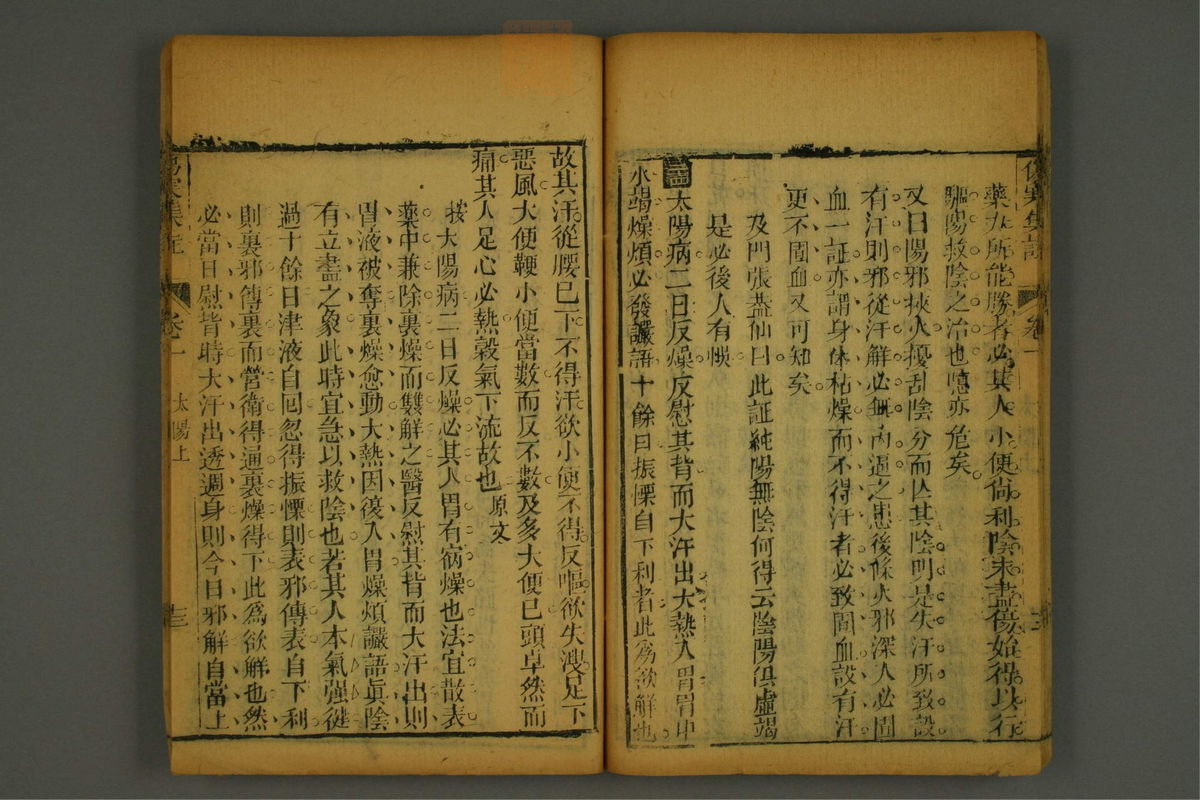 藥力所能勝者必其人小便尚利陰未盡傷始得以行
驅陽救陰之治也噫亦危矣
又曰陽邪挾火擾乱陰分而亾其陰明是失汗所致設
有汗則邪從汗解必無內逼之患後條火邪深入必圊
血一証亦謂身体枯燥而不得汗者必致圊血設有汗
更不圊血又可知矣
及門張蓋仙曰此証純陽無陰何得云陰陽俱虛竭
是必後人有悞
太陽病二日反燥反熨其背而大汗出大熱入胃胃中
水竭燥煩必發讝語十餘曰振慄自下利者此為欲解也
傷寒集註
卷一
故其汗從腰已下不得汗欲小便不得反嘔欲失溲足下
惡風大便鞕小便當數而反不數及多大便已頭卓然而
痛其人足心必熱穀氣下流故也原文
按大陽病二日反燥必其人胃有宿燥也法宜散表
藥中兼除裏燥而雙解之醫反熨其背而大汗出則
胃液被奪裏燥愈動大熱因復入胃燥煩讝語眞陰
有立盡之象此時宜急以救陰也若其人本氣强徤
過十餘日津液自囘忽得振慄則表邪傳表自下利
則裏邪傳裏而營衛得通裏燥得下此爲欲解也然
必當日熨背時大汗出透週身則今日邪解自當上
卷一
太陽上
三